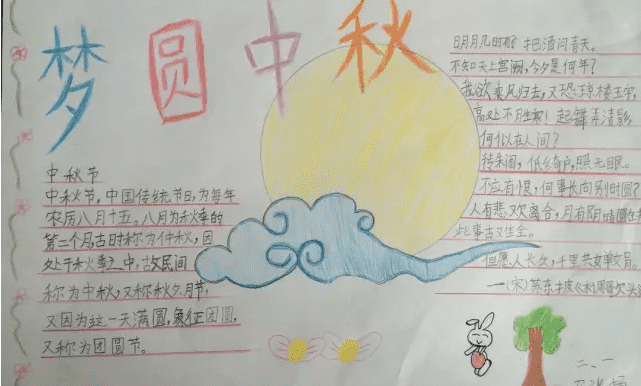 梦圆中秋
中秋节
中秋节,中国传统节日,为每年
农历八月十五。八月为秋季的
第二个月,古时称为仲秋,因
处于秋季之中,故民间
称为中秋,又称秋夕,月节,
又因为这一天满圆,象征团圆,
又称为团圆节。
明月几时有?把酒问青天。
不知天上宫阙,今夕是何年?
我欲乘风归去,又恐琼楼玉宇,
高处不胜寒!起舞弄清影
何似在人间?
转朱阁,低绮户,照无眠。
不应有恨,何事长向别时圆?
人有悲欢离合,月有阴晴圆
此事古难全。
但愿人长久,千里共婵娟。
—(宋)苏东坡《水调歌头
二、一